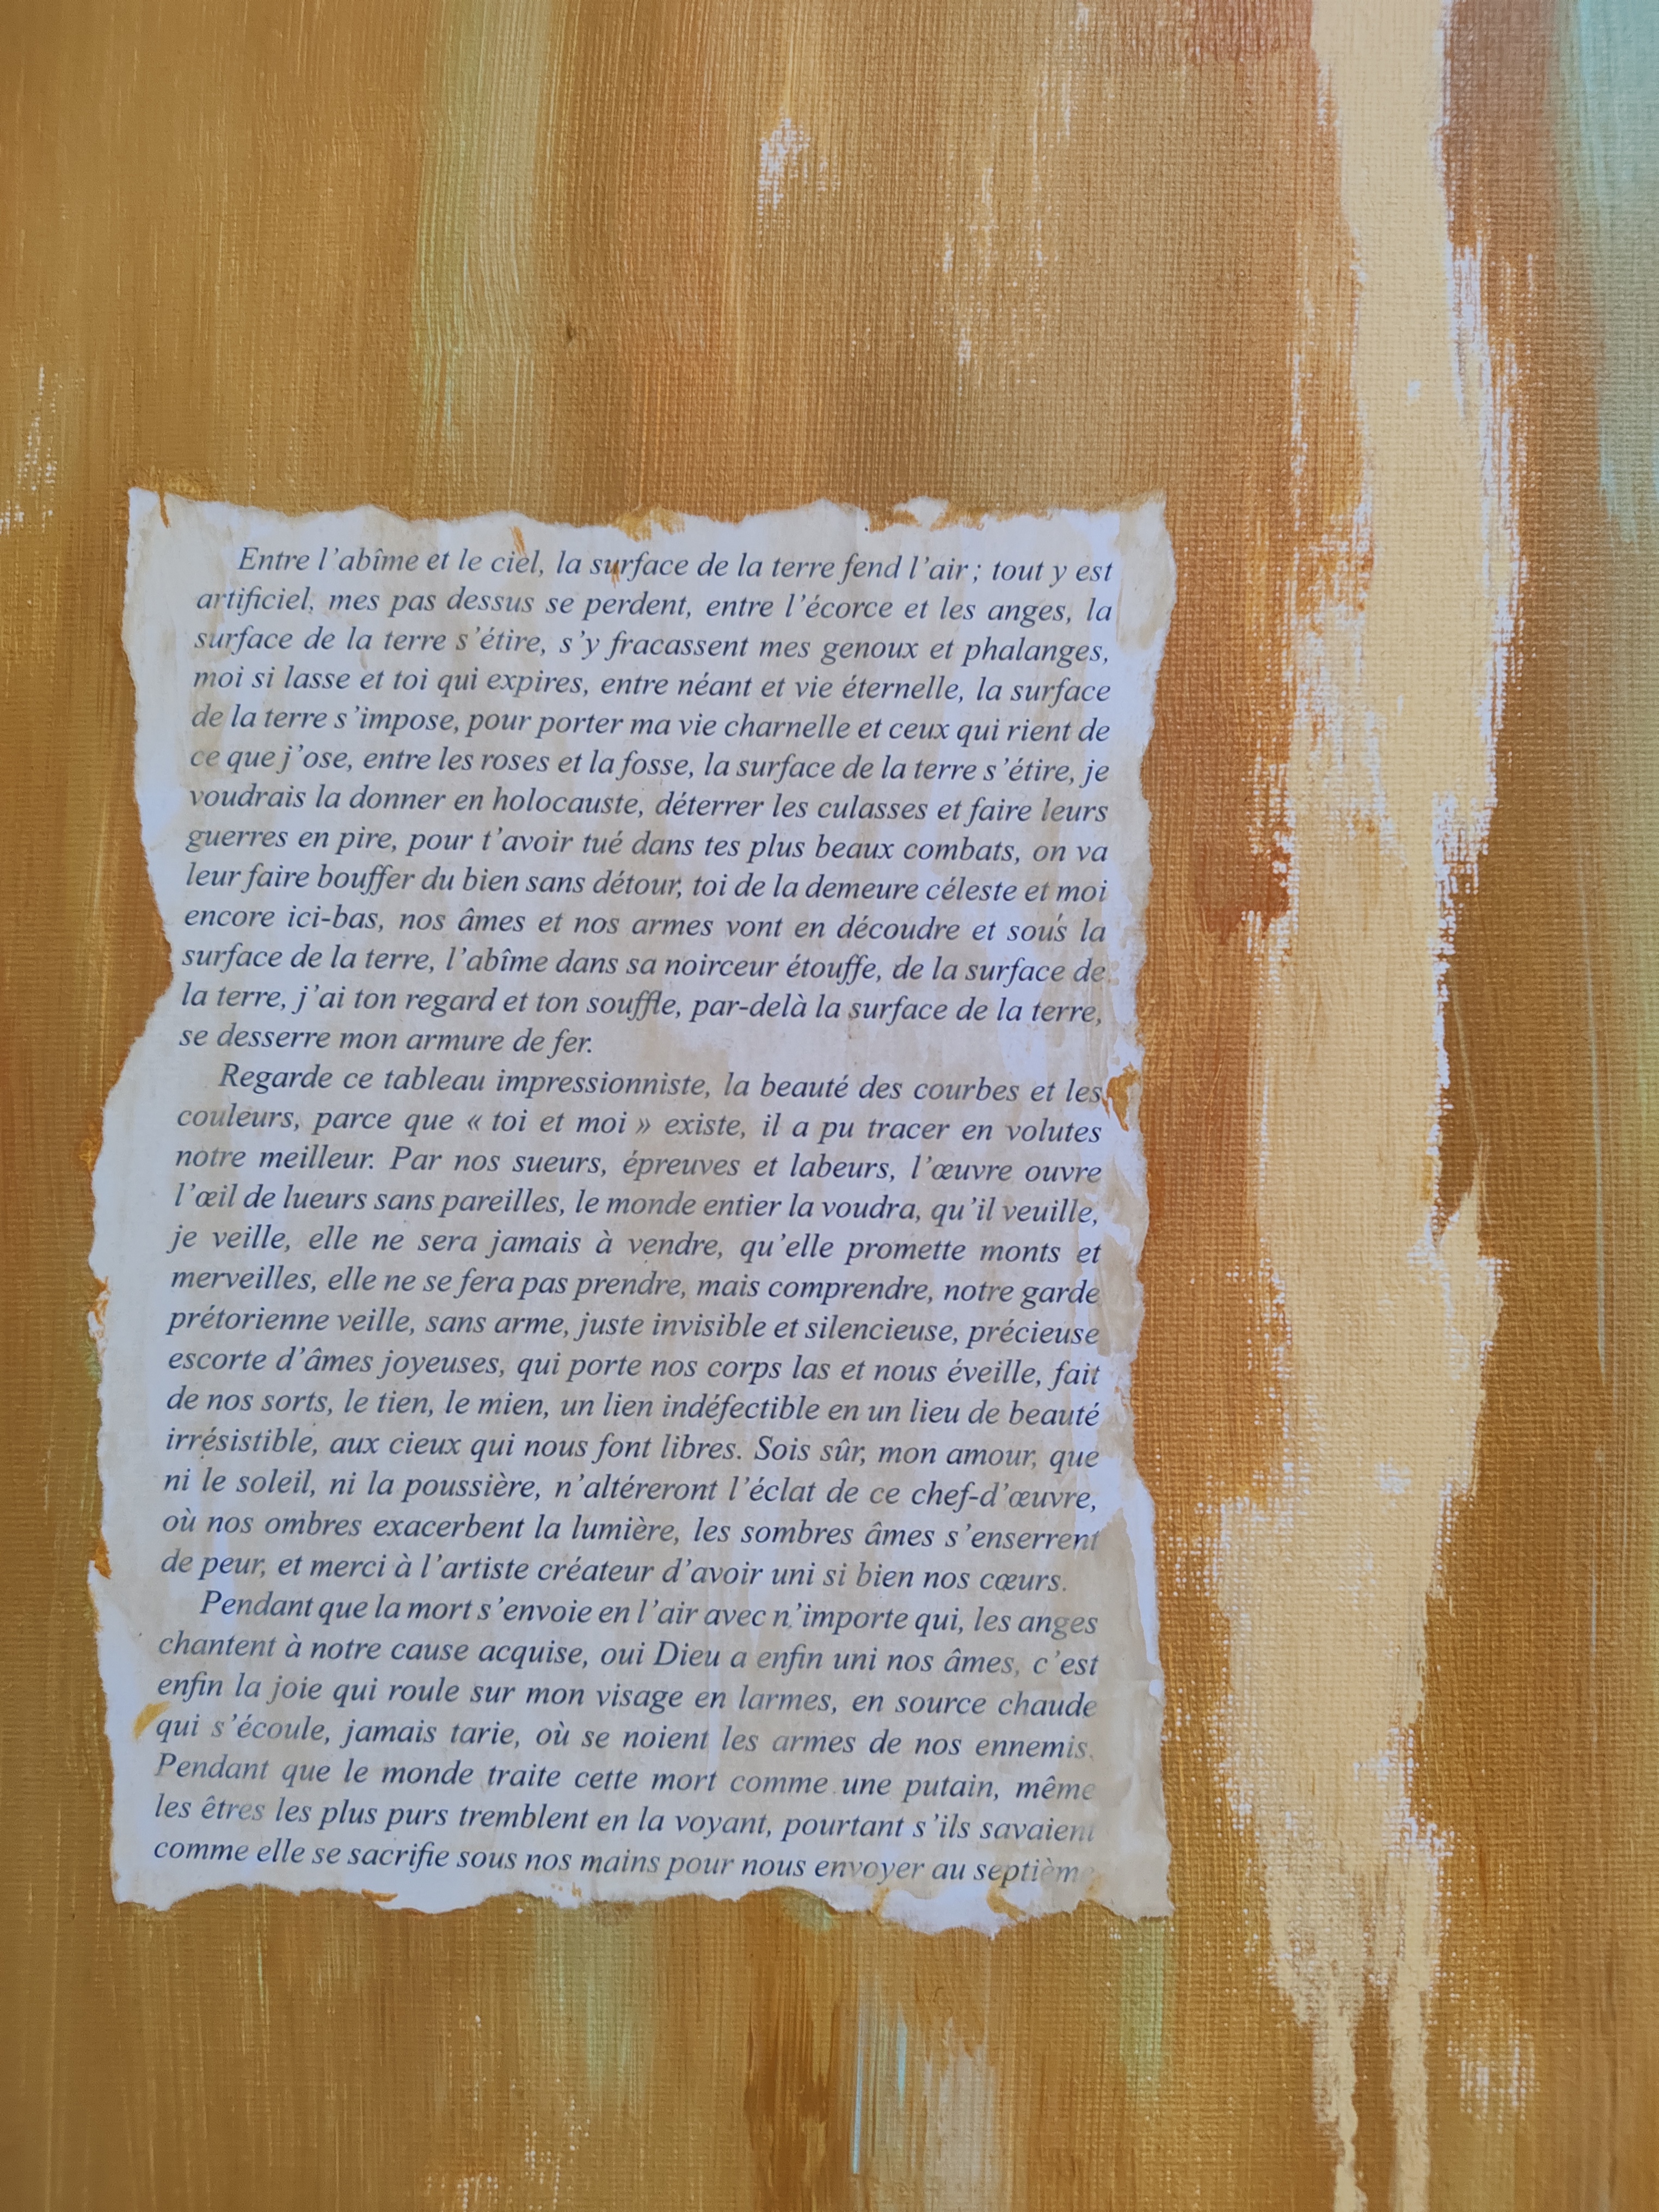 Entre l'abîme et le ciel, la surface de la terre fend l'air ; tout y est
artificiel, mes pas dessus se perdent, entre l'écorce et les anges, la
surface de la terre s'étire, s'y fracassent mes genoux et phalanges,
moi si lasse et toi qui expires, entre néant et vie éternelle, la surface
de la terre s'impose, pour porter ma vie charnelle et ceux qui rient de
ce que j'ose, entre les roses et la fosse, la surface de la terre s'étire, je
voudrais la donner en holocauste, déterrer les culasses et faire leurs
guerres en pire, pour t'avoir tué dans tes plus beaux combats, on va
leur faire bouffer du bien sans détour, toi de la demeure céleste et moi
encore ici-bas, nos âmes et nos armes vont en découdre et sous la
surface de la terre, l'abîme dans sa noirceur étouffe, de la surface de
la terre, j'ai ton regard et ton souffle, par-delà la surface de la terre,
se desserre mon armure de fer.
Regarde ce tableau impressionniste, la beauté des courbes et les
couleurs, parce que « toi et moi » existe, il a pu tracer en volutes
notre meilleur. Par nos sueurs, épreuves et labeurs, l'œuvre ouvre
l'œil de lueurs sans pareilles, le monde entier la voudra, qu'il veuille,
je veille, elle ne sera jamais à vendre, qu'elle promette monts et
merveilles, elle ne se fera pas prendre, mais comprendre, notre garde
prétorienne veille, sans arme, juste invisible et silencieuse, précieuse
escorte d'âmes joyeuses, qui porte nos corps las et nous éveille, fait
de nos sorts, le tien, le mien, un lien indéfectible en un lieu de beauté
irrésistible, aux cieux qui nous font libres. Sois sûr, mon amour, que
ni le soleil, ni la poussière, n'altéreront l'éclat de ce chef-d'œuvre,
où nos ombres exacerbent la lumière, les sombres âmes s'enserrent
de peur, et merci à l'artiste créateur d'avoir uni si bien nos cœurs.
Pendant que la mort s'envoie en l'air avec n'importe qui, les anges
chantent à notre cause acquise, oui Dieu a enfin uni nos âmes, c'est
enfin la joie qui roule sur mon visage en larmes, en source chaude
qui s'écoule, jamais tarie, où se noient les armes de nos ennemis.
Pendant que le monde traite cette mort comme une putain, même
les êtres les plus purs tremblent en la voyant, pourtant s'ils savaient
comme elle se sacrifie sous nos mains pour nous envoyer au septième